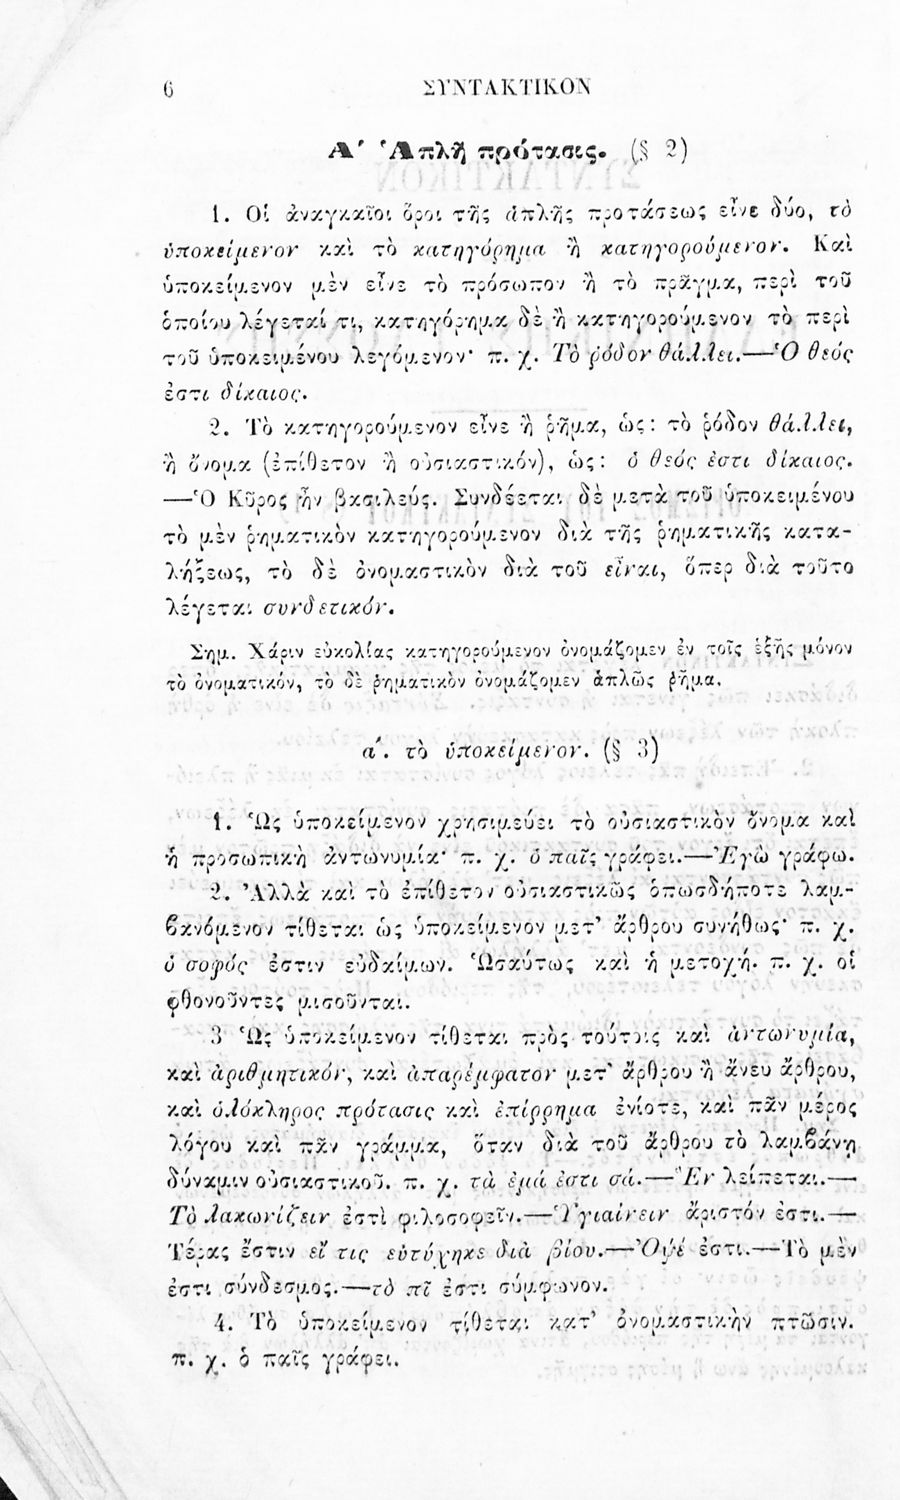 6 ΣΥΝΤΑΚΤΙΚΟΝ
Α′ Ἁπλῆ πρότασις. (§ 2)
1. Οἱ ἀναγκαῖοι ὅροι τῆς ἁπλῆς προτάσεως εἶνε δύο, τὸ
ὑποκείμενον καὶ τὸ κατηγόρημα ἢ κατηγορούμενον. Καὶ
ὑποκείμενον μὲν εἶνε τὸ πρόσωπον ἢ τὸ πρᾶγμα, περὶ τοῦ
ὁποίου λέγεταί τι, κατηγόρημα δὲ ἢ κατηγορούμενον τὸ περὶ
τοῦ ὑποκειμένου λεγόμενον· π. χ. Τὸ ῥόδον θάλλει.—Ὁ θεός
ἐστι δίκαιος.
2. Τὸ κατηγορούμενον εἶνε ἢ ῥῆμα, ὡς: τὸ ῥόδον θάλλει,
ἢ ὄνομα (ἐπίθετον ἢ οὐσιαστικόν), ὡς: ὁ θεός ἐστι δίκαιος.
—Ὁ Κῦρος ἦν βασιλεύς. Συνδέεται δὲ μετὰ τοῦ ὑποκειμένου
τὸ μὲν ῥηματικὸν κατηγορούμενον διὰ τῆς ῥηματικῆς κατα-
λήξεως, τὸ δὲ ὀνομαστικὸν διὰ τοῦ εἶναι, ὅπερ διὰ τοῦτο
λέγεται συνδετικόν.
Σημ. Χάριν εὐκολίας κατηγορούμενον ὀνομάζομεν ἐν τοῖς ἑξῆς μόνον
τὸ ὀνοματικόν, τὸ δὲ ῥηματικὸν ὀνομάζομεν ἁπλῶς ῥῆμα.
α′. τὸ ὑποκείμενον. (§ 3)
1. Ὡς ὑποκείμενον χρησιμεύει τὸ οὐσιαστικὸν ὄνομα καὶ
ἡ προσωπικὴ ἀντωνυμία· π. χ. ὁ παῖς γράφει.—Ἐγὼ γράφω.
2. Ἀλλὰ καὶ τὸ ἐπίθετον οὐσιαστικῶς ὁπωσδήποτε λαμ-
βανόμενον τίθεται ὡς ὑποκείμενον μετ’ ἄρθρου συνήθως· π. χ.
ὁ σοφός ἐστιν εὐδαίμων. Ὡσαύτως καὶ ἡ μετοχή. π. χ. οἱ
φθονοῦντες μισοῦνται.
3 Ὡς ὑποκείμενον τίθεται πρὸς τούτοις καὶ ἀντωνυμία,
καὶ ἀριθμητικόν, καὶ ἀπαρέμφατον μετ’ ἄρθρου ἢ ἄνευ ἄρθρου,
καὶ ὁλόκληρος πρότασις καὶ ἐπίρρημα ἐνίοτε, καὶ πᾶν μέρος
λόγου καὶ πᾶν γράμμα, ὅταν διὰ τοῦ ἄρθρου τὸ λαμβάνῃ
δύναμιν οὐσιαστικοῦ. π. χ. τὰ ἐμά ἐστι σά.—Ἓν λείπεται.—
Τὸ λακωνίζειν ἐστὶ φιλοσοφεῖν.—Ὑγιαίνειν ἄριστόν ἐστι.—
Τέρας ἔστιν εἴ τις εὐτύχηκε διὰ βίου.—Ὀψέ ἐστι.—Τὸ μὲν
ἐστι σύνδεσμος.—τὸ πῖ ἐστι σύμφωνον.
4. Τὸ ὑποκείμενον τίθεται κατ’ ὀνομαστικὴν πτῶσιν.
π. χ. ὁ παῖς γράφει.